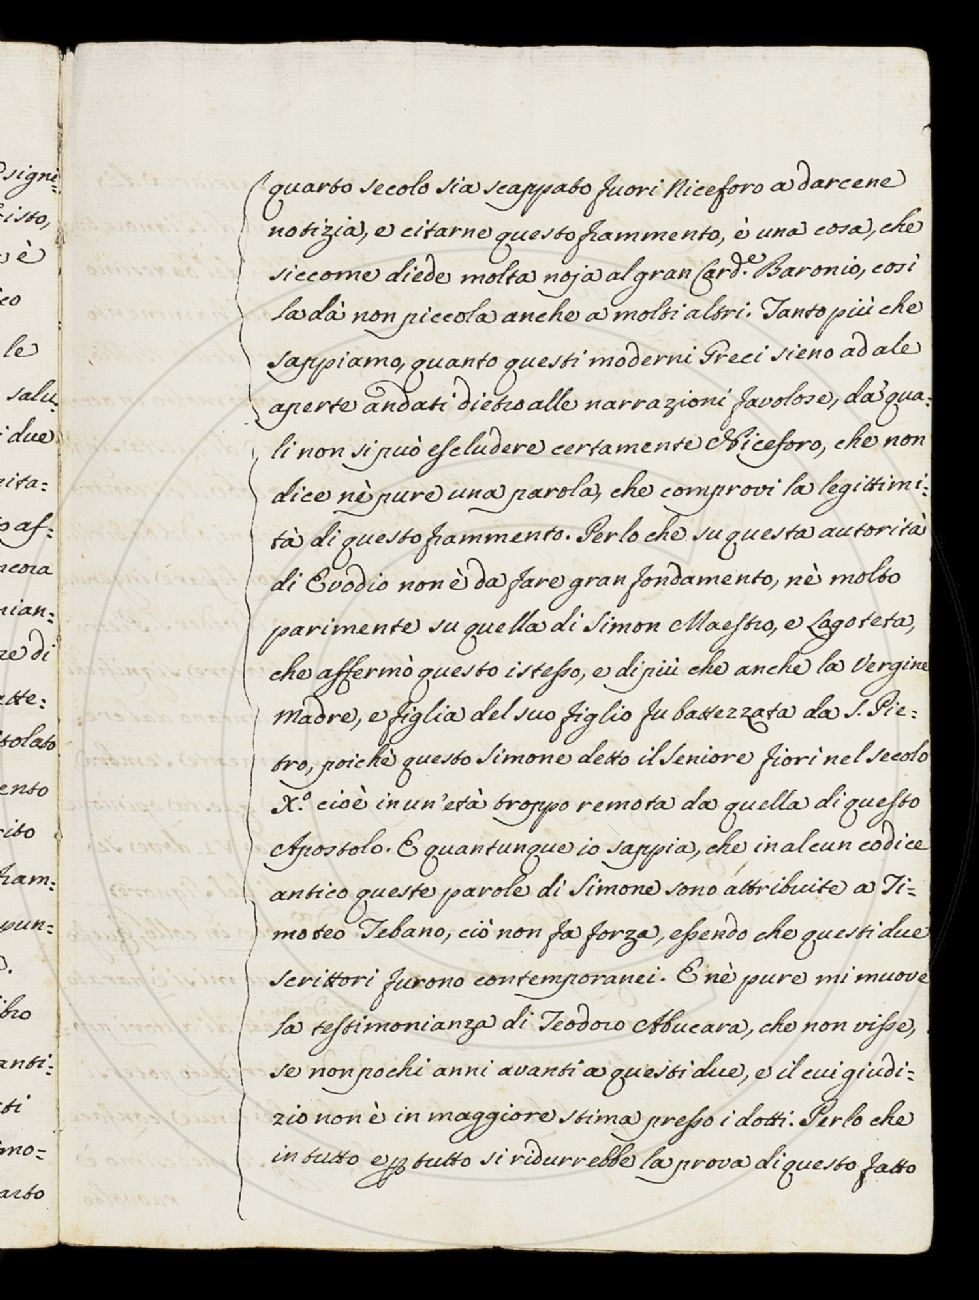 quarto secolo sia scappato fuori Niceforo a darcene
notizia, e citarne questo frammento, è una cosa, che
siccome diede molta noja al gran Card.e Baronio, così
la dà non piccola anche a molti altri. Tanto più che
sappiamo, quanto questi moderni Greci sieno ad ale
aperte andati dietro alle narrazioni favolose, da' qua=
li non si può escludere certamente Niceforo, che non
dice nè pure una parola, che comprovi la legittimi=
tà di questo frammento. Perlo che su questa autorità
di Evodio non è da fare gran fondamento, nè molto
parimente su quella di Simon Maestro, e Lagoteta,
che affermò questo istesso, e di più che anche la Vergine
Madre, e figlia del suo figlio fu battezzata da S. Pie=
tro, poichè questo Simone detto il Seniore fiorì nel secolo
X.o cioè in un'età troppo remota da quella di questo
Apostolo. E quantunque io sappia, che in alcun codice
antico queste parole di Simone sono attribuite a Ti=
moteo Tebano, ciò non fa forza, essendo che questi due
scrittori furono contemporanei. E nè pure mi muove
la testimonianza di Teodoro Abucara, che non visse,
se non pochi anni avanti a questi due, e il cui giudi=
zio non è in maggiore stima presso i dotti. Perlo che
in tutto e p tutto si ridurrebbe la prova di questo fatto